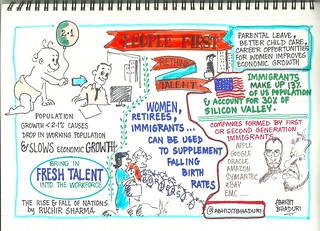 PEOPLE FIRST
RETHINK
TALENT
2.1
POPULATION
GROWTH < 2.1% CAUSES
DROP IN WORKING POPULATION
& SLOWS ECONOMIC GROWTH
BRING IN
FRESH TALENT
INTO THE WORKFORCE
THE RISE & FALL OF NATIONS
by RUCHIR SHARMA
WOMEN,
RETIREES,
IMMIGRANTS...
CAN BE USED
TO SUPPLEMENT
FALLING
BIRTH
RATES
@ABHIJITBHADURI
PARENTAL LEAVE,
BETTER CHILD CARE,
CAREER OPPORTUNITIES
FOR WOMEN IMPROVES
ECONOMIC GROWTH
IMMIGRANTS
MAKE UP 13%
OF US POPULATION
& ACCOUNT FOR 30% OF
SILICON VALLEY.
COMPANIES FORMED BY FIRST
OR SECOND GENERATION
IMMIGRANTS
APPLE
GOOGLE
ORACLE
AMAZON
SYMANTEC
EBAY
EMC ....
ABHIJIT
BHADURI